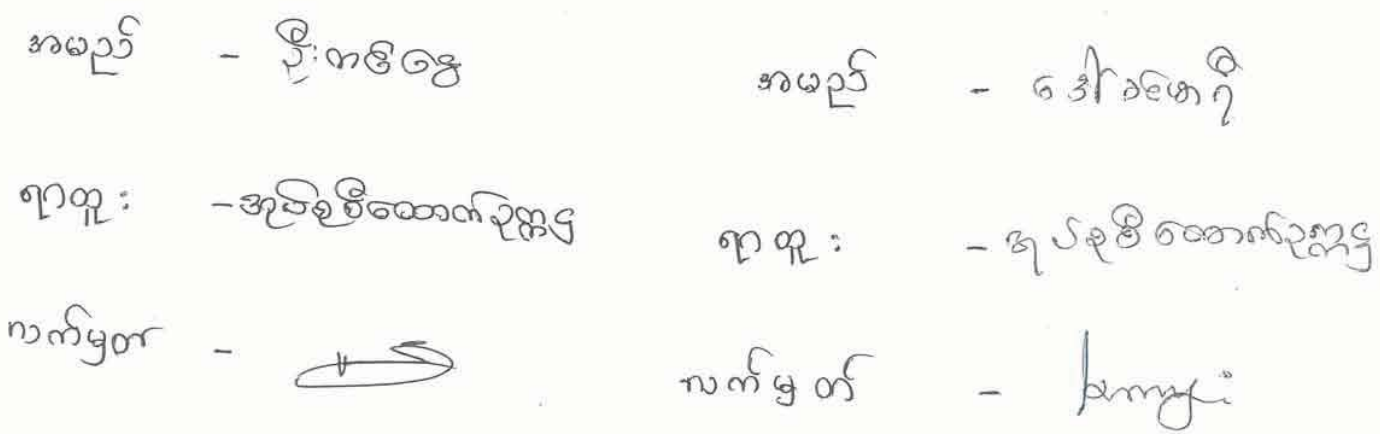 အမည် - ဦးတင်ငွေ
ရာထူး - အုပ်စုစီထောက်ဥက္ကဋ္ဌ
လက်မှတ် -
အမည် - ဒေါ်ခင်မာရီ
ရာထူး - အုပ်စုစီထောက်ဥက္ကဋ္ဌ
လက်မှတ် -